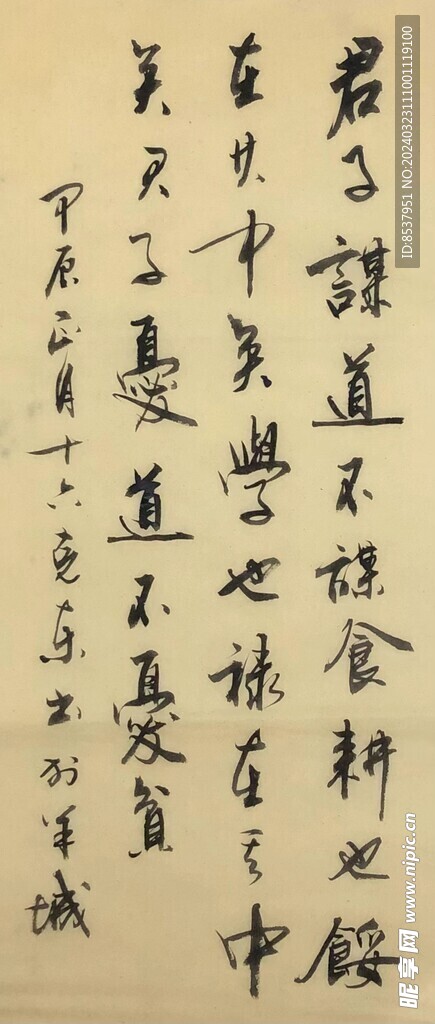 君子謀道不謀食耕也餒
在其中矣學也禄在其中
矣君子憂道不憂貧
甲辰正月十六克东书於羊城
ID:8537951 NO:20240323111001119100
昵享网 www.nipic.cn